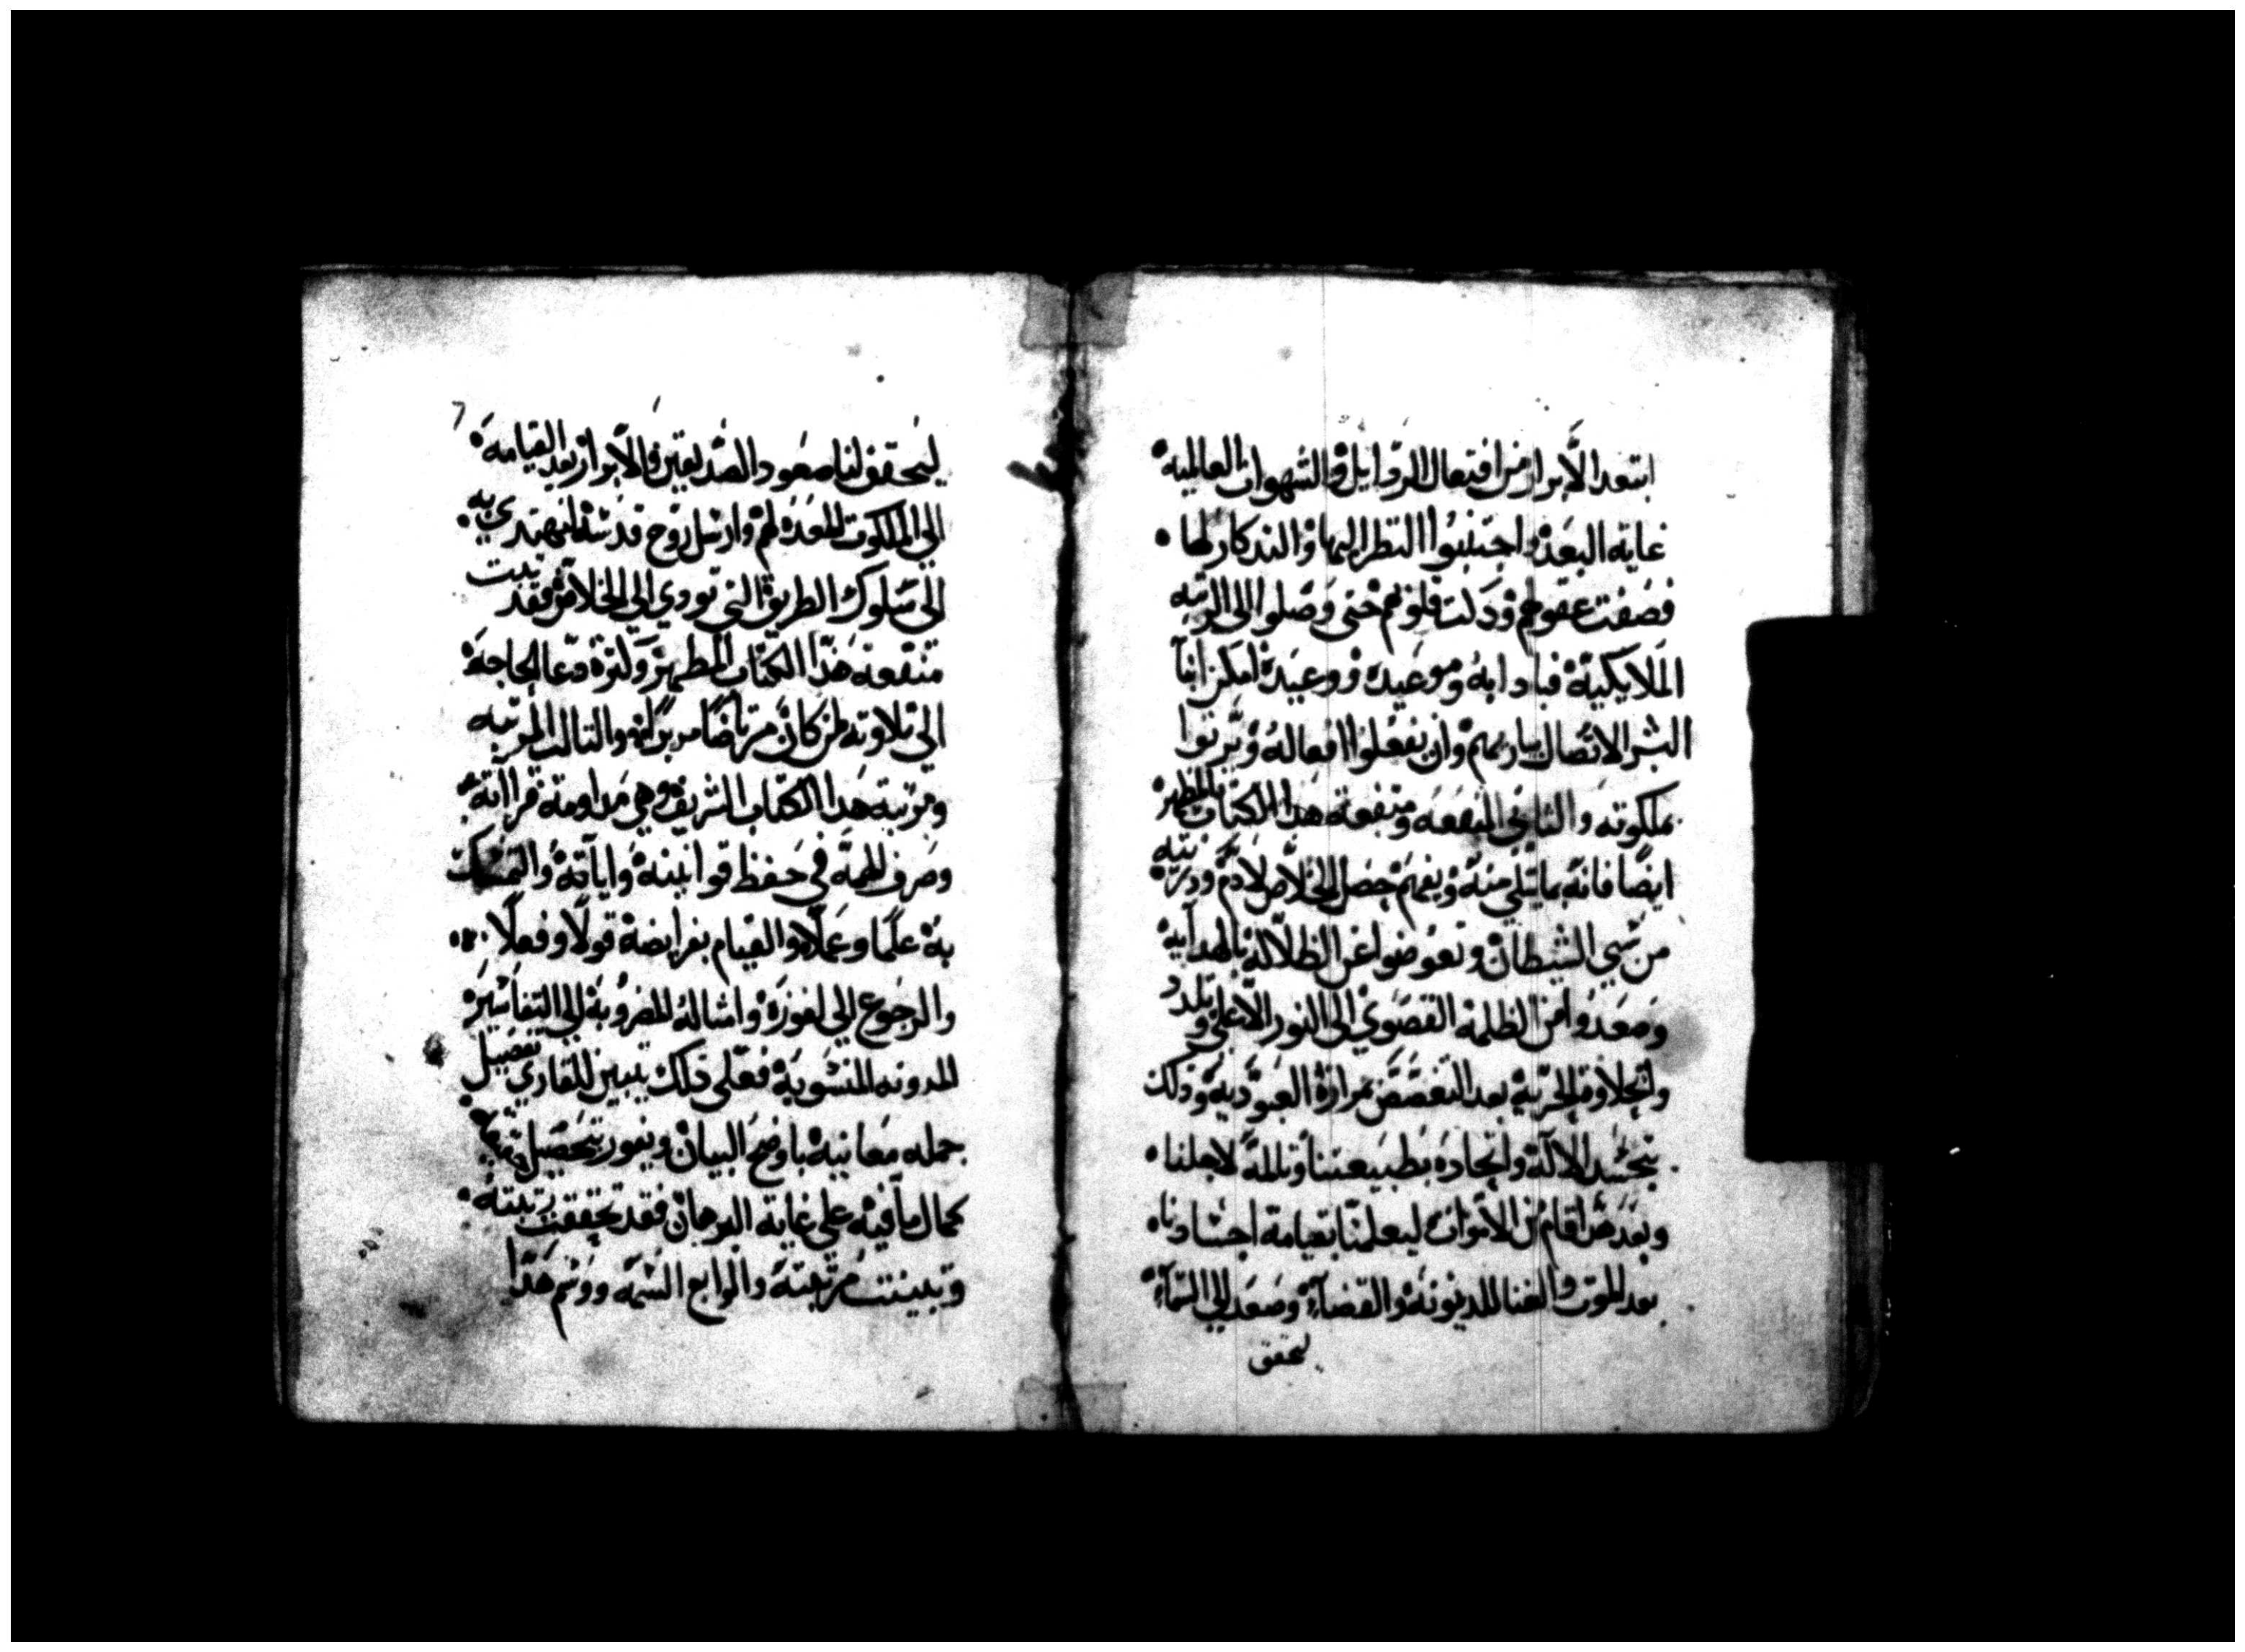 ابتعد الابرار من افتعال الردايل والشهوات العالمية
غاية البعد واجتنبوا النظر اليها والتدكار لها
فصفت عقولهم ودكت قلوبهم حتى وصلوا الى الرتبه
الملايكية فبادابه ومواعيده ووعيده امكن ابنآ
البشر الاتصال بباريهم وان يفعلوا افعاله ويرتوا
ملكوته والتاني المنفعه ومنفعة هدا الكتاب المطهر
ايضا فانه بما يتلي منه ويفهم حصل الخلاص لادم ودريته
من سبي الشيطان وتعوضوا عن الظلالة بالهداية
وصعدوا من الظلمه القصوي الى النور الاعلي وتلددوا
بحلاوة الحرية بعد التغصص بمرارة العبودية ودلك
بتجسد الالاه واتحاده بطبيعتنا وتالمه لاجلنا
وبعد هدا قام من الاموات ليعلمنا بقيامة اجسادنا
بعد الموت والفنا للدينونة والقضآء وصعد الي السمآء
لتحقق
7
ليحقق لنا صعود الصديقين والابرار بعد القيامة
الي الملكوت المعدة لهم وارسل روح قدسه لنهتدي به
الى سلوك الطريق التي تودي الي الخلاص فقد تبت
منفعة هدا الكتاب المطهر وكترة دعا الحاجة
الى تلاوته لمن كان مرتاضا والتالت المرتبه
ومرتبة هدا الكتاب الشريف وهي مداومة قرااته
وصرف الهمة في حفظ قوانينه واياته والتمسك
به علما وعملا والقيام بفرايضة قولا وفعلا
والرجوع الي لغوزه وامثاله المضروبة الي التفاسير
المدونه المنسوبة فعلى دلك يتبين للقاري تفصيل
جمله معانية باوضح البيان ويفوز بتحصيل
كمال ما فيه علي غاية البرهان فقد تحققت رتبته
وتبينت مرتبته والرابع السمه ووسم هدا